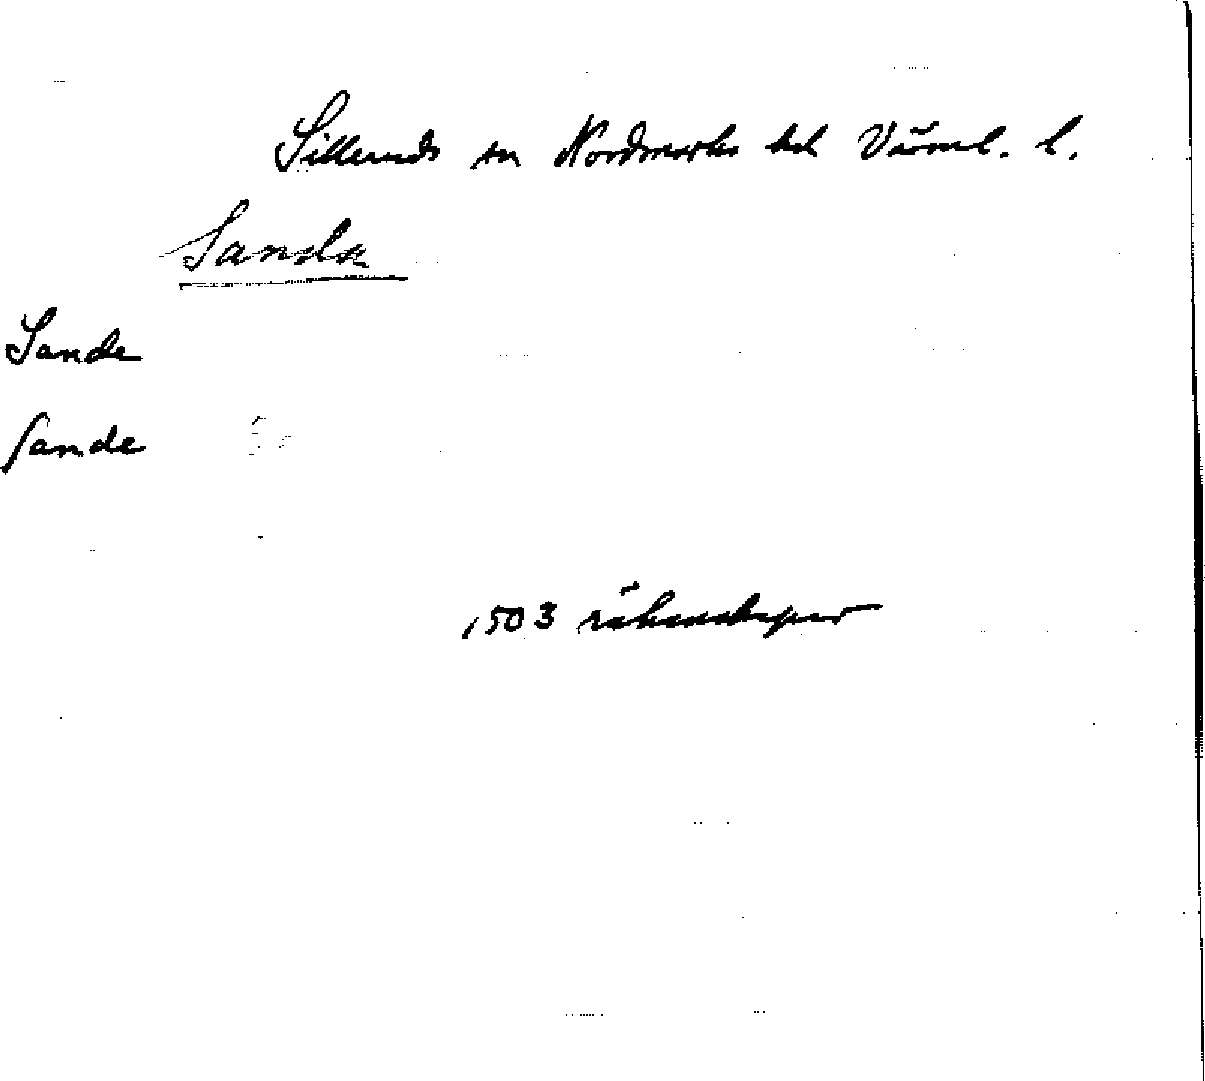 Silleruds sn Nordmarks hd Värml. l.
Sanda
Sande
Sande
1503 räkenskaper